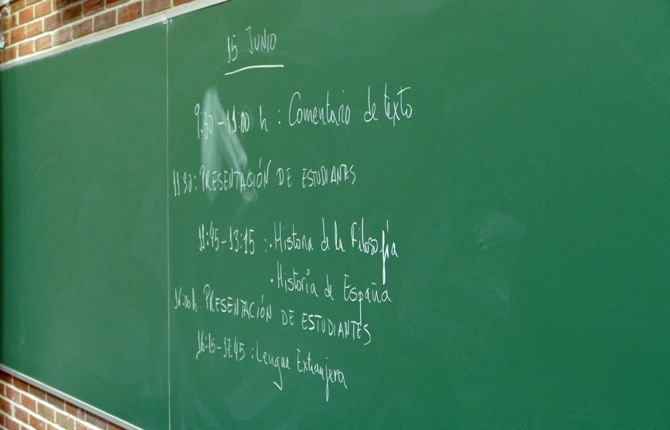 15 JUNIO
9:30-11:00 h : Comentario de texto
11:30: PRESENTACIÓN DE ESTUDIANTES
11:45-13:15 : · Historia de la Filosofía
· Historia de España
16:00h PRESENTACIÓN DE ESTUDIANTES
16:15-17:45 : Lengua Extranjera